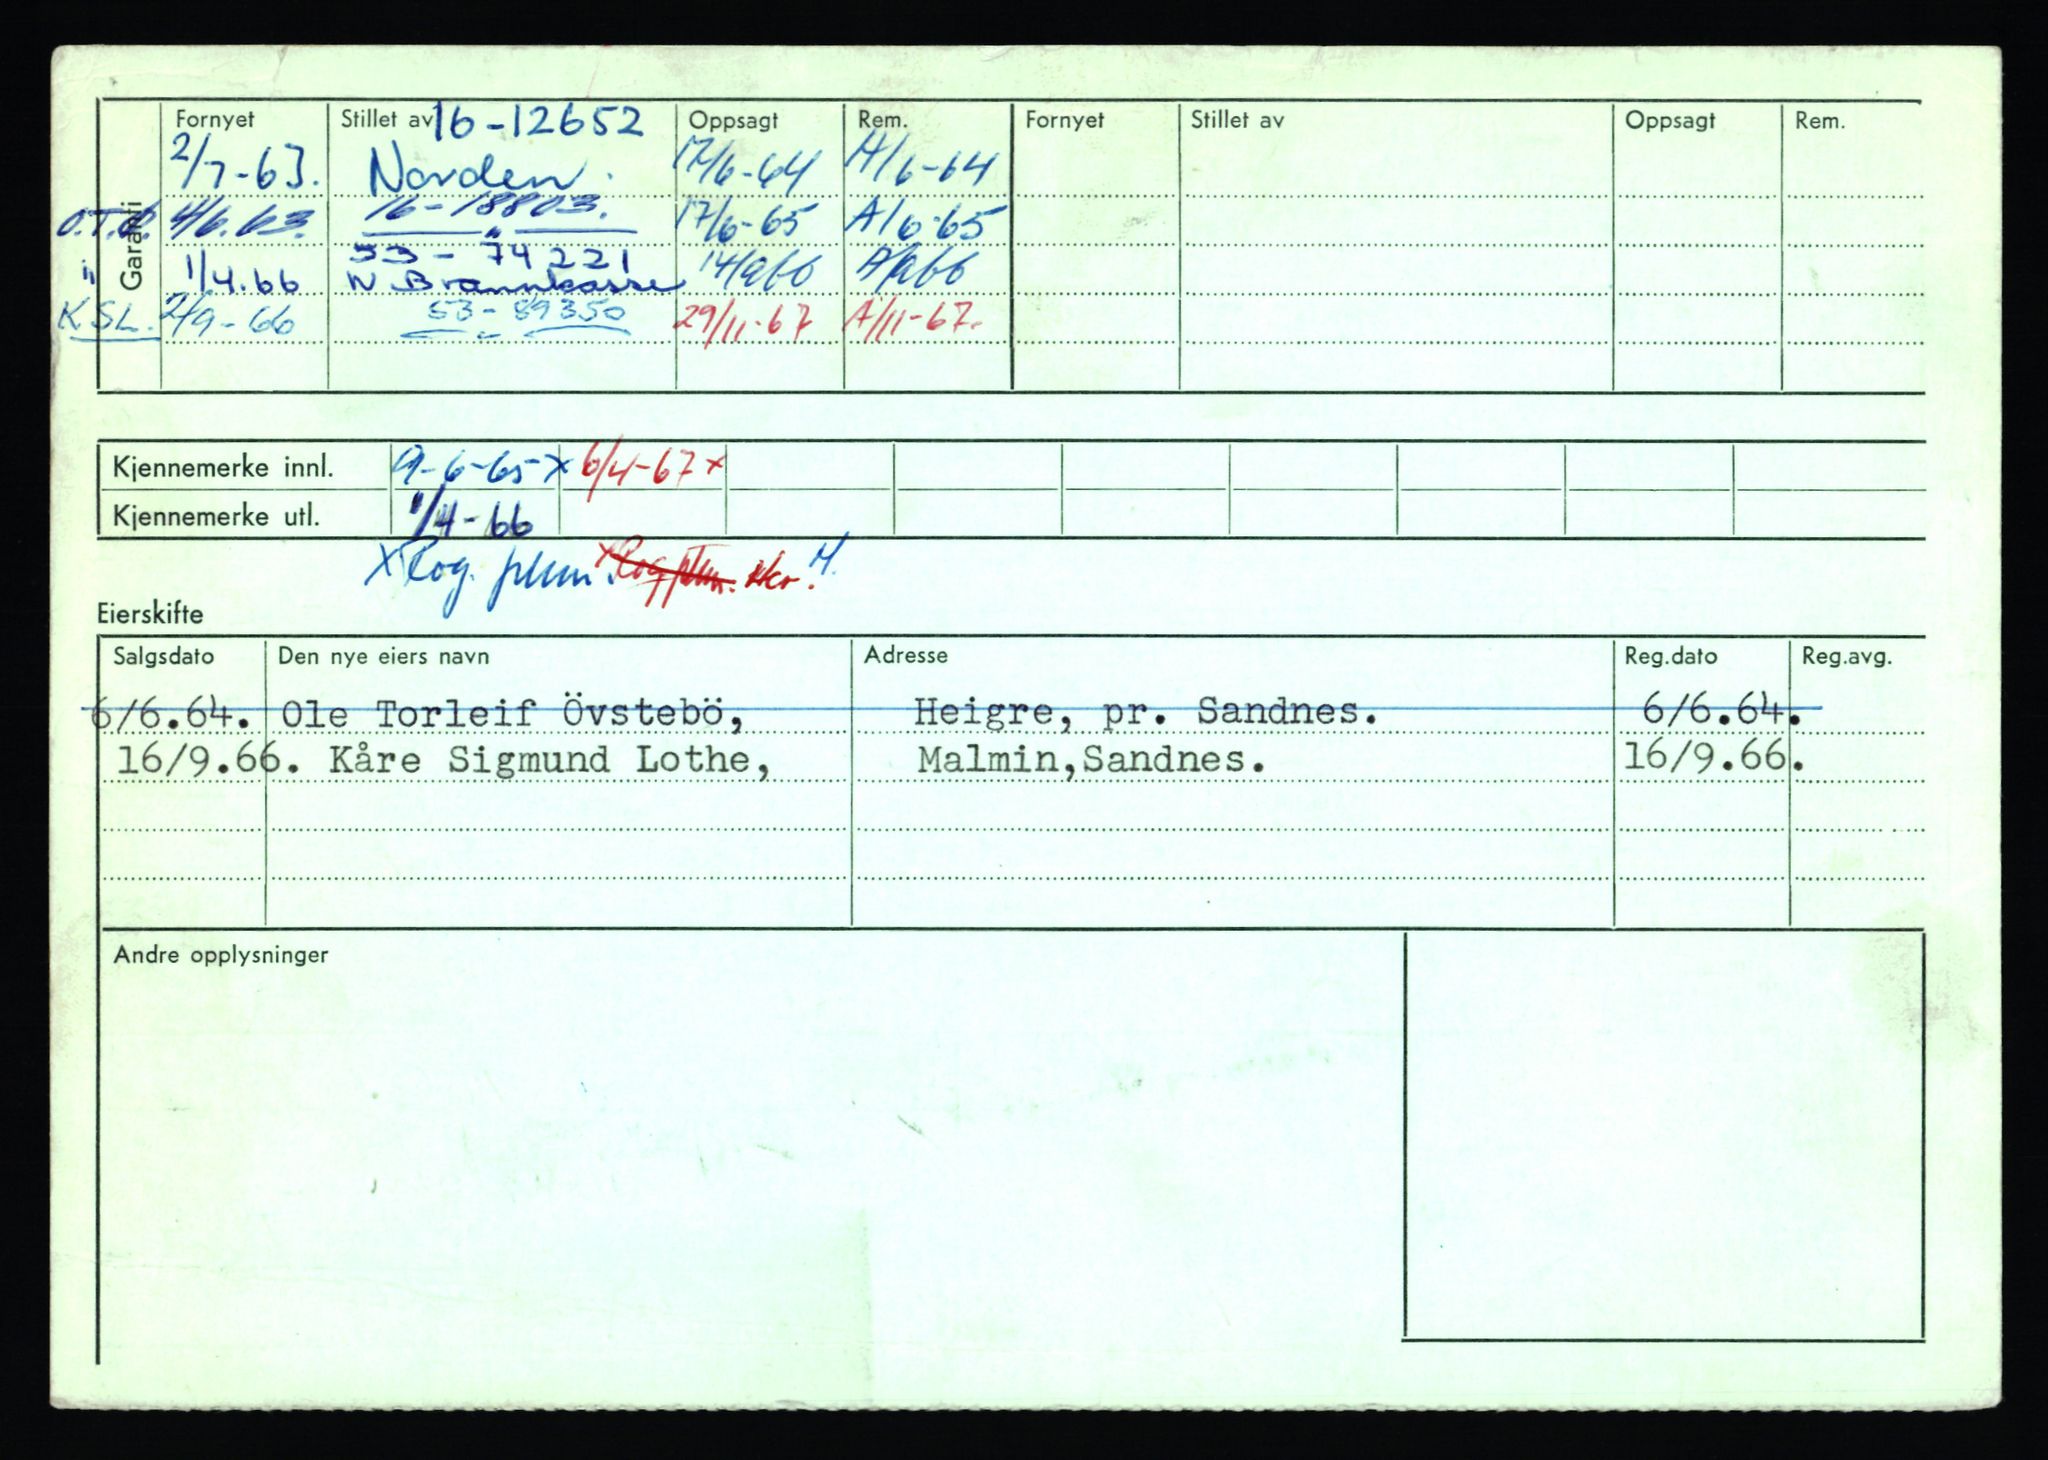 Garanti Fornyet Stillet av 16-12652 Oppsagt Rem. Fornyet Stillet av Oppsagt Rem.
2/7-63. Norden. 17/6-64 A/6-64
4/6.63. 16-18803. 17/6-65 A/6-65
" 1/4.66 53-74221 14/966 A/966
N. Brannkasse
KSL. 2/9-66 53-89350 29/11-67 A/11-67.
Kjennemerke innl. 9-6-65-x 6/4-67 x
Kjennemerke utl. 1/4-66
x Rog. x M.
Eierskifte
Salgsdato Den nye eiers navn Adresse Reg.dato Reg.avg.
6/6.64. Ole Torleif Övstebö, Heigre, pr. Sandnes. 6/6.64.
16/9.66. Kåre Sigmund Lothe, Malmin,Sandnes. 16/9.66.
Andre opplysninger